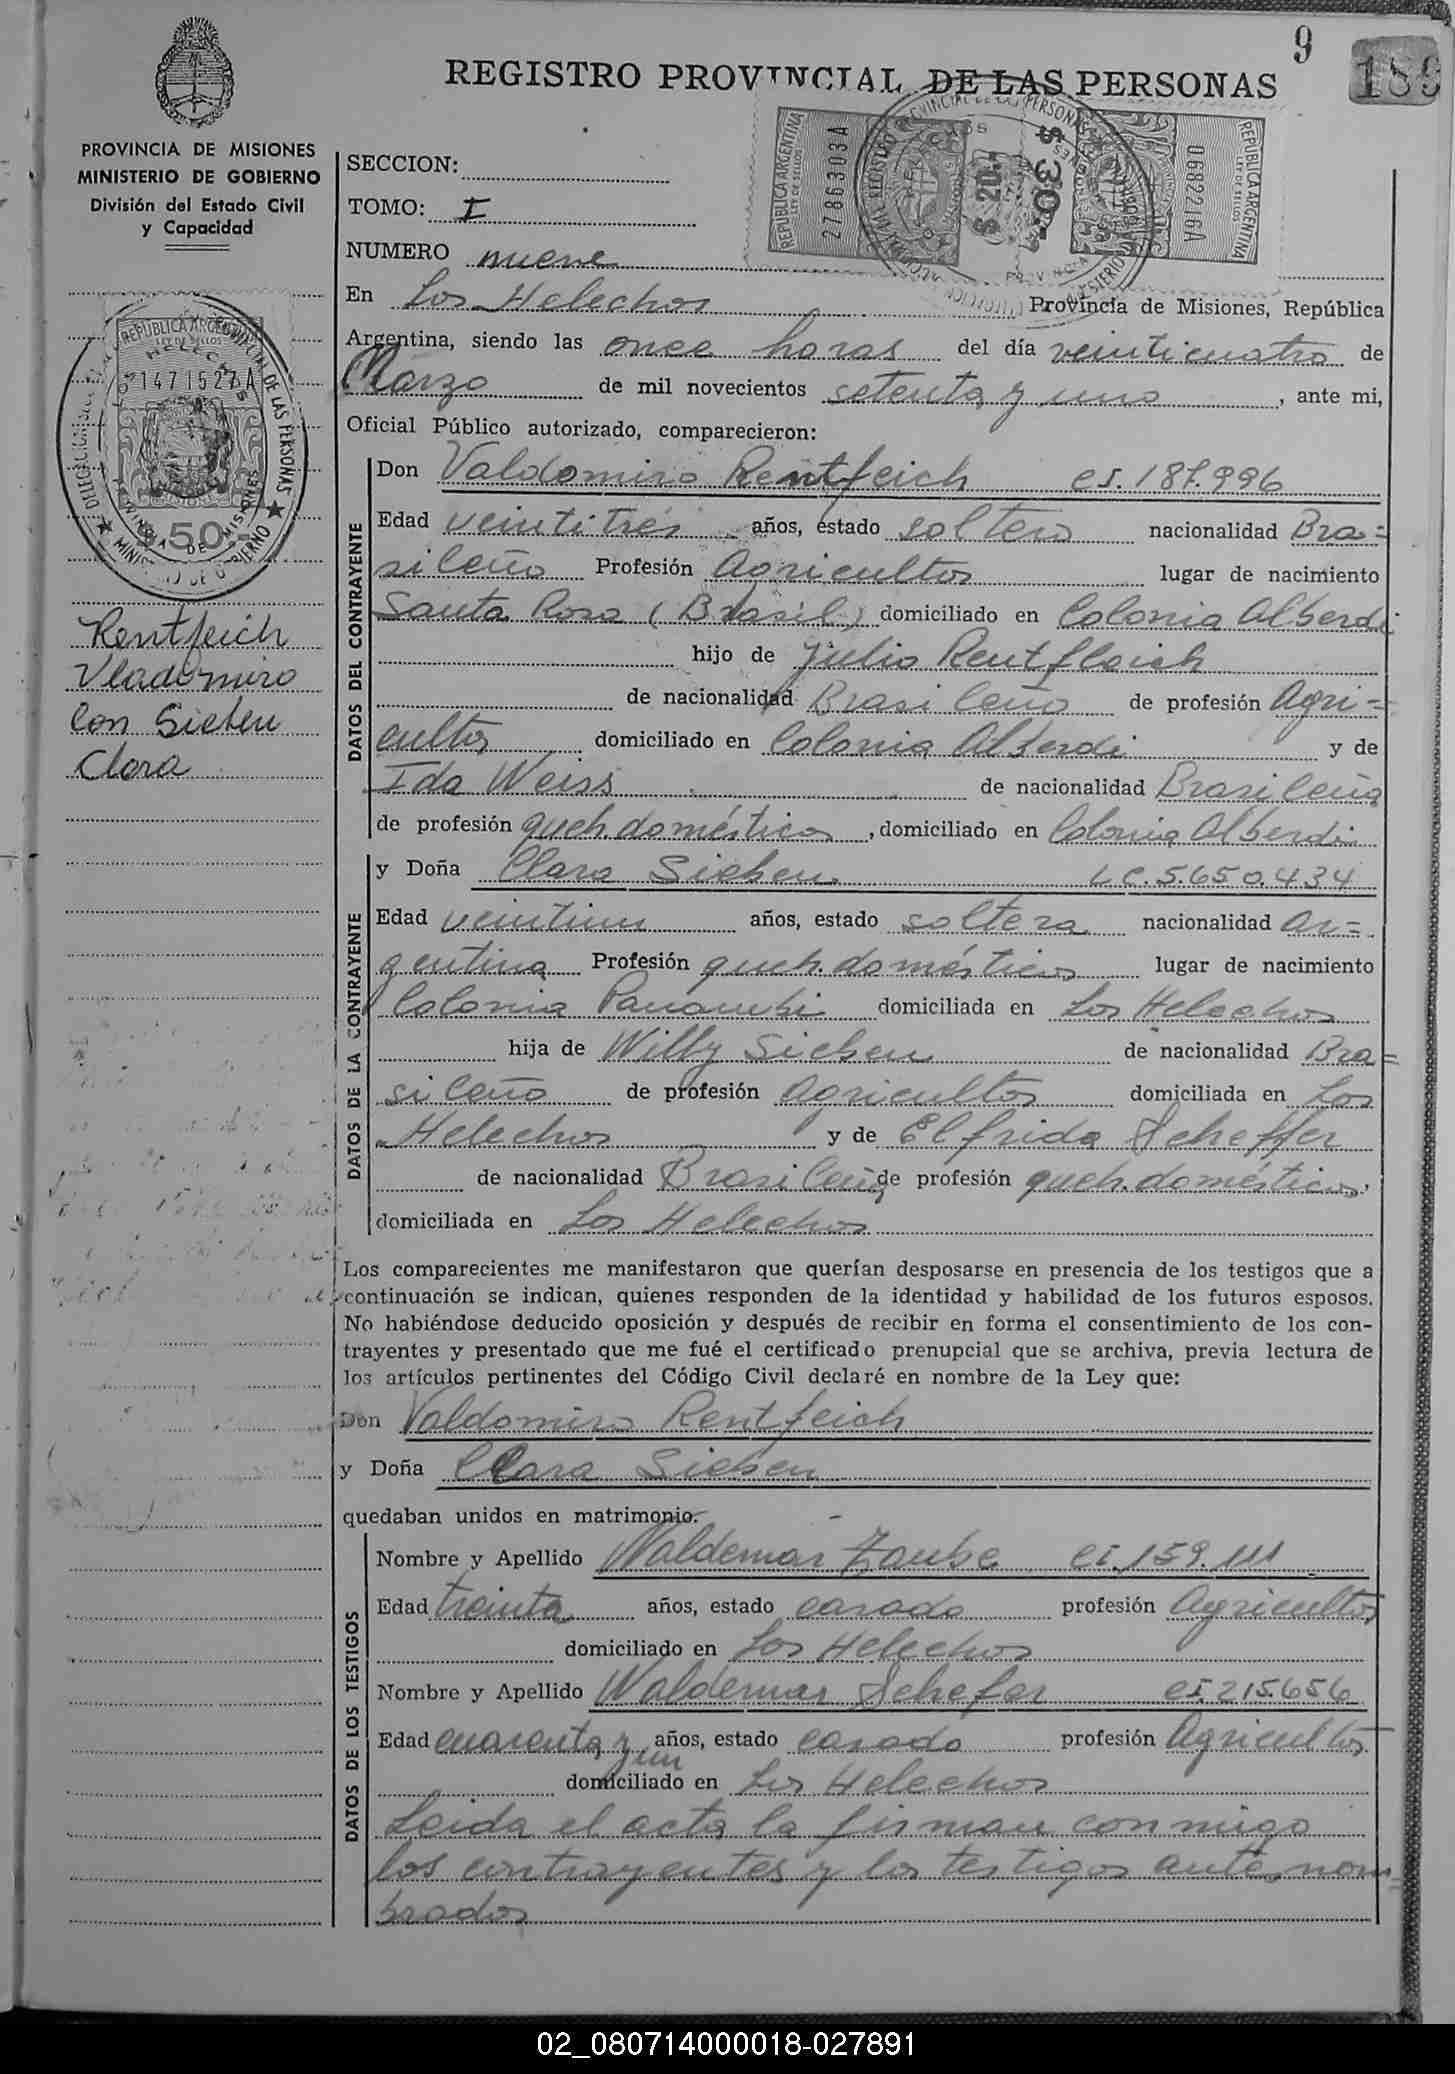 9
189
REGISTRO PROVINCIAL DE LAS PERSONAS
PROVINCIA DE MISIONES
MINISTERIO DE GOBIERNO
División del Estado Civil
y Capacidad
REPUBLICA ARGENTINA
LEY DE SELLOS
1471527A
50
REPUBLICA ARGENTINA
LEY DE SELLOS
2786303A
$ 20
$ 30
0682216A
REPUBLICA ARGENTINA
LEY DE SELLOS
Rentfeich
Vladomiro
Con Sieben
Clara
SECCION:
TOMO: I
NUMERO nueve
En Los Helechos Provincia de Misiones, República
Argentina, siendo las once horas del día veinticuatro de
Marzo de mil novecientos setenta y uno, ante mi,
Oficial Público autorizado, comparecieron:
DATOS DEL CONTRAYENTE
Don Valdomiro Rentfeich CI. 187.996
Edad veintitrés años, estado soltero nacionalidad Bra=
sileño Profesión Agricultor lugar de nacimiento
Santa Rosa (Brasil) domiciliado en Colonia Alberdi
hijo de Julio Rentfleich
de nacionalidad Brasileño de profesión Agri=
cultor domiciliado en Colonia Alberdi y de
Ida Weiss de nacionalidad Brasileña
de profesión queh. domésticos, domiciliado en Colonia Alberdi
DATOS DE LA CONTRAYENTE
y Doña Clara Sieben LC. 5650.434
Edad veintiun años, estado soltera nacionalidad Ar=
gentina Profesión queh. domésticos lugar de nacimiento
Colonia Panambi domiciliada en Los Helechos
hija de Willy Sieben de nacionalidad Bra=
sileño de profesión Agricultor domiciliado en Los
Helechos y de Elfrida Scheffer
de nacionalidad Brasileña de profesión queh. domésticos,
domiciliada en Los Helechos
Los comparecientes me manifestaron que querían desposarse en presencia de los testigos que a
continuación se indican, quienes responden de la identidad y habilidad de los futuros esposos.
No habiéndose deducido oposición y después de recibir en forma el consentimiento de los con-
trayentes y presentado que me fué el certificado prenupcial que se archiva, previa lectura de
los artículos pertinentes del Código Civil declaré en nombre de la Ley que:
Don Valdomiro Rentfeich
y Doña Clara Sieben
quedaban unidos en matrimonio.
DATOS DE LOS TESTIGOS
Nombre y Apellido Waldemar Zaube CI. 159.111
Edad treinta años, estado casado profesión Agricultor
domiciliado en Los Helechos
Nombre y Apellido Waldemar Schefer CI. 215.656
Edad cuarenta y un años, estado casado profesión Agricultor
domiciliado en Los Helechos
Leida el acta la firman conmigo
los contrayentes y los testigos ante nom=
brados
02_080714000018-027891